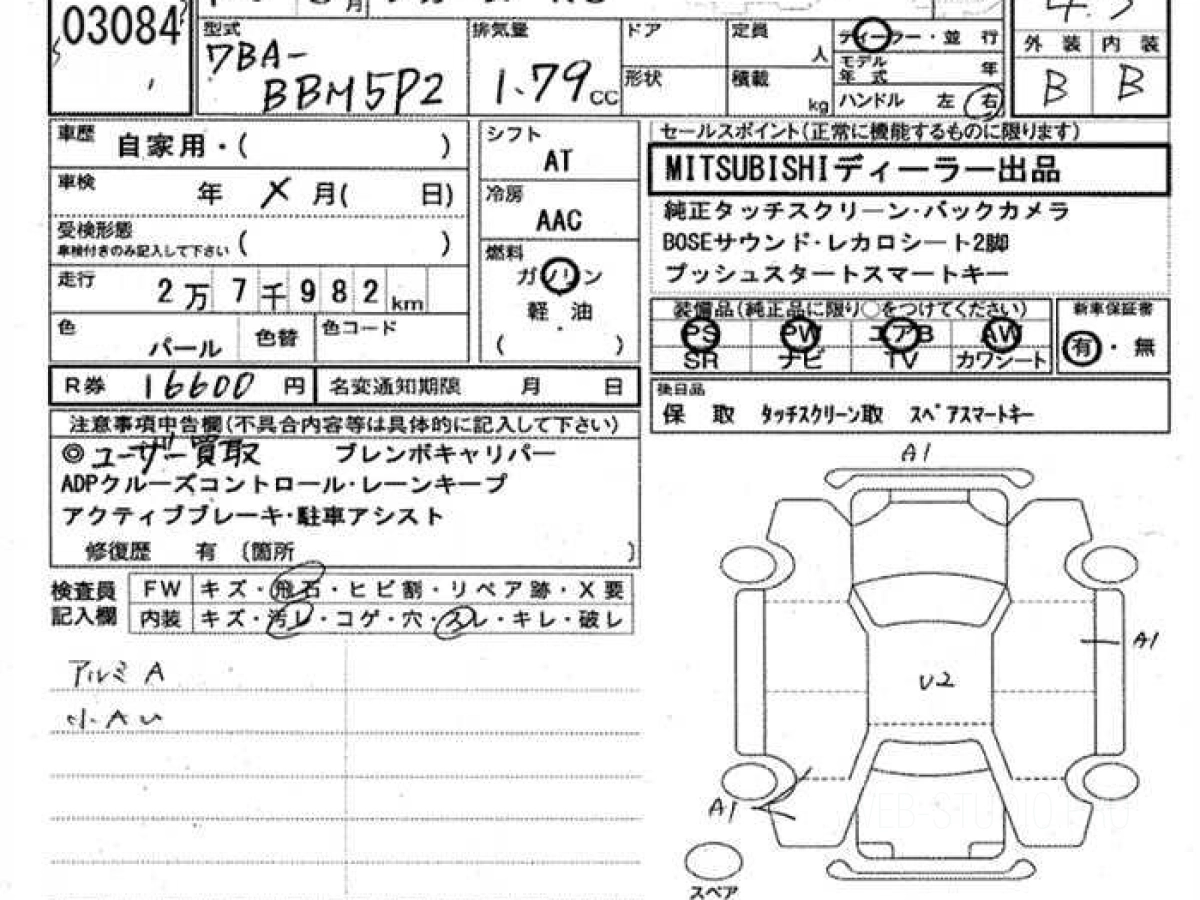 03084
型式
7BA-
BBM5P2
排気量
1.79 CC
ドア
形状
定員
人
積載
kg
ディーラー・並 行
モデル
年 式
年
ハンドル 左 右
外 装 内 装
B B
車歴 自家用・( )
車検 年 X 月( 日)
受検形態
車検付きのみ記入して下さい ( )
走行 2万7千982 km
色 パール 色替 色コード
シフト
AT
冷房
AAC
燃料
ガソリン
軽 油
・
( )
セールスポイント(正常に機能するものに限ります)
MITSUBISHIディーラー出品
純正タッチスクリーン・バックカメラ
BOSEサウンド・レカロシート2脚
プッシュスタートスマートキー
装備品(純正品に限り○をつけてください)
PS PW エアB AW
SR ナビ TV カワシート
新車保証書
有・無
R券 16600 円 名変通知期限 月 日
後日品
保 取 タッチスクリーン取 スペアスマートキー
注意事項申告欄(不具合内容等は具体的に記入して下さい)
◎ユーザー買取 ブレンボキャリパー
ADPクルーズコントロール・レーンキープ
アクティブブレーキ・駐車アシスト
修復歴 有 (箇所 )
検査員
記入欄
FW キズ・飛石・ヒビ割・リペア跡・X要
内装 キズ・汚レ・コゲ・穴・スレ・キレ・破レ
アルミ A
小AU
A1
A1
U2
A1
スペア
WEB-STUDIO.PRO